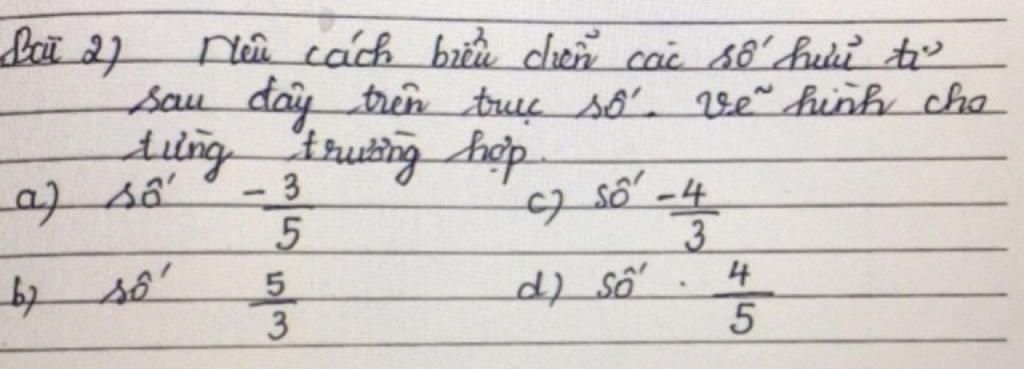 Bài 2) Nêu cách biểu diễn các số hữu tỉ
sau đây trên trục số. Vẽ hình cho
từng trường hợp.
a) số -3/5 c) số -4/3
b) số 5/3 d) số 4/5